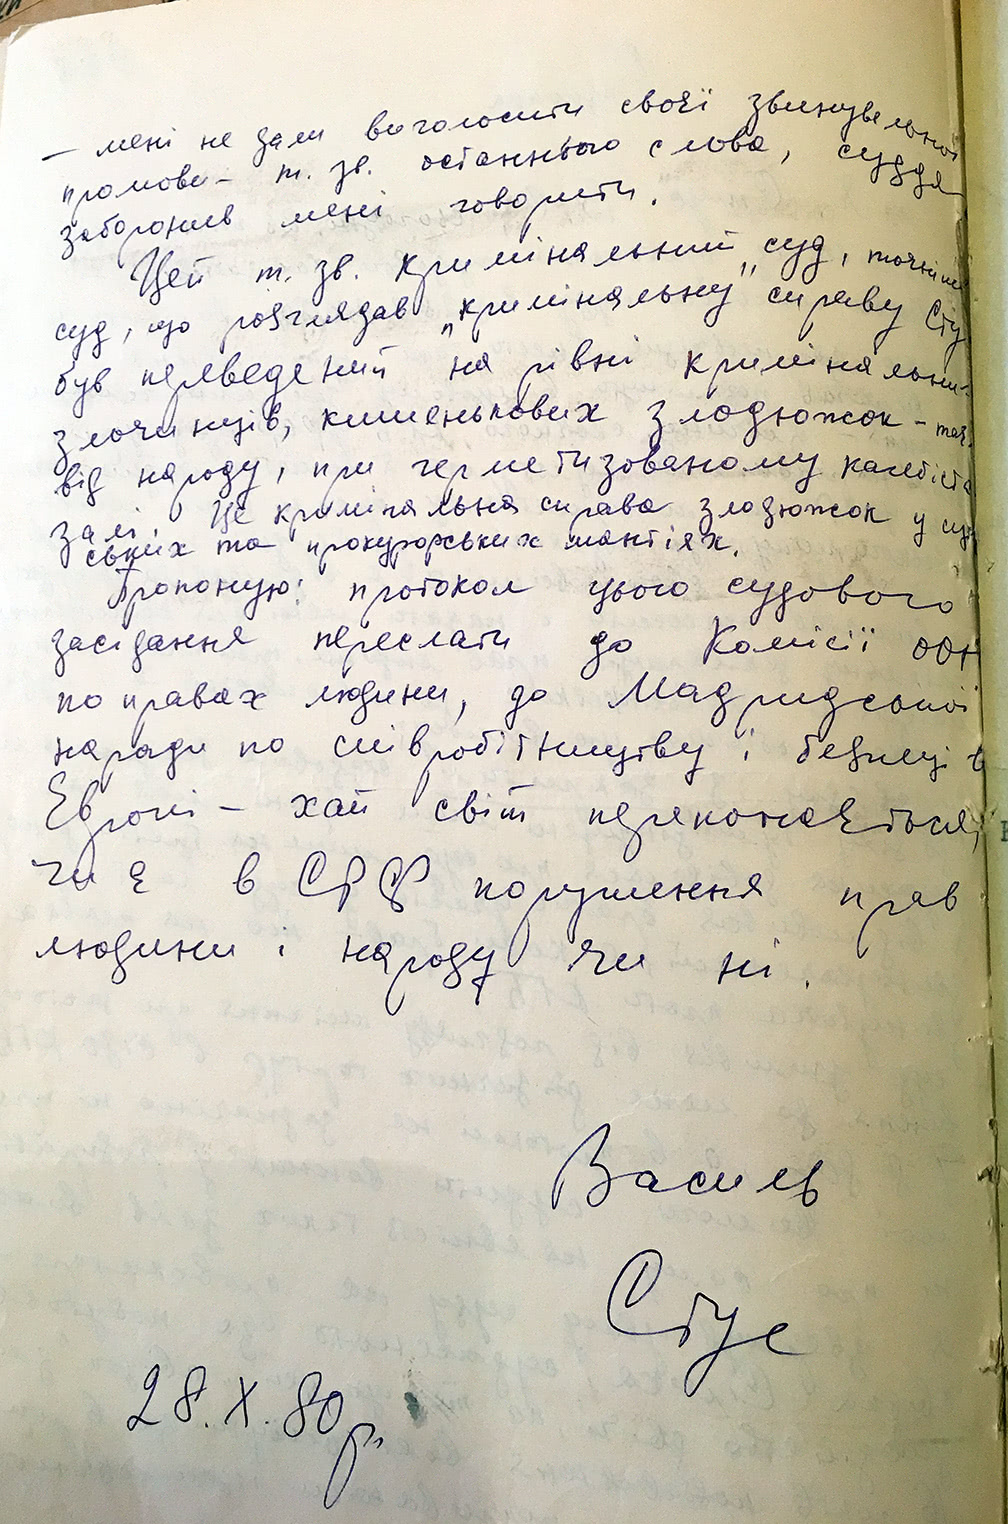 — мені не дали виголосити своєї звинувальної
промови – т. зв. останнього слова, суддя
заборонив мені говорити.
Цей т. зв. кримінальний суд, точніше
суд, що розглядав „кримінальну” справу Сту
був переведений на рівні кримінальни-
злочинців, кишенькових злодюжок – таєм
від народу, при герметизованому кагебіста
залі. Це кримінальна справа злодюжок у суд
ських та прокурорських мантіях.
Пропоную: протокол цього судового
засідання переслати до Комісії ООН
по правах людини, до Мадридської
наради по співробітництву і безпеці в
Європі – хай світ переконається,
чи є в СРСР порушення прав
людини і народу чи ні.
Василь
Стус
28.X.80р.